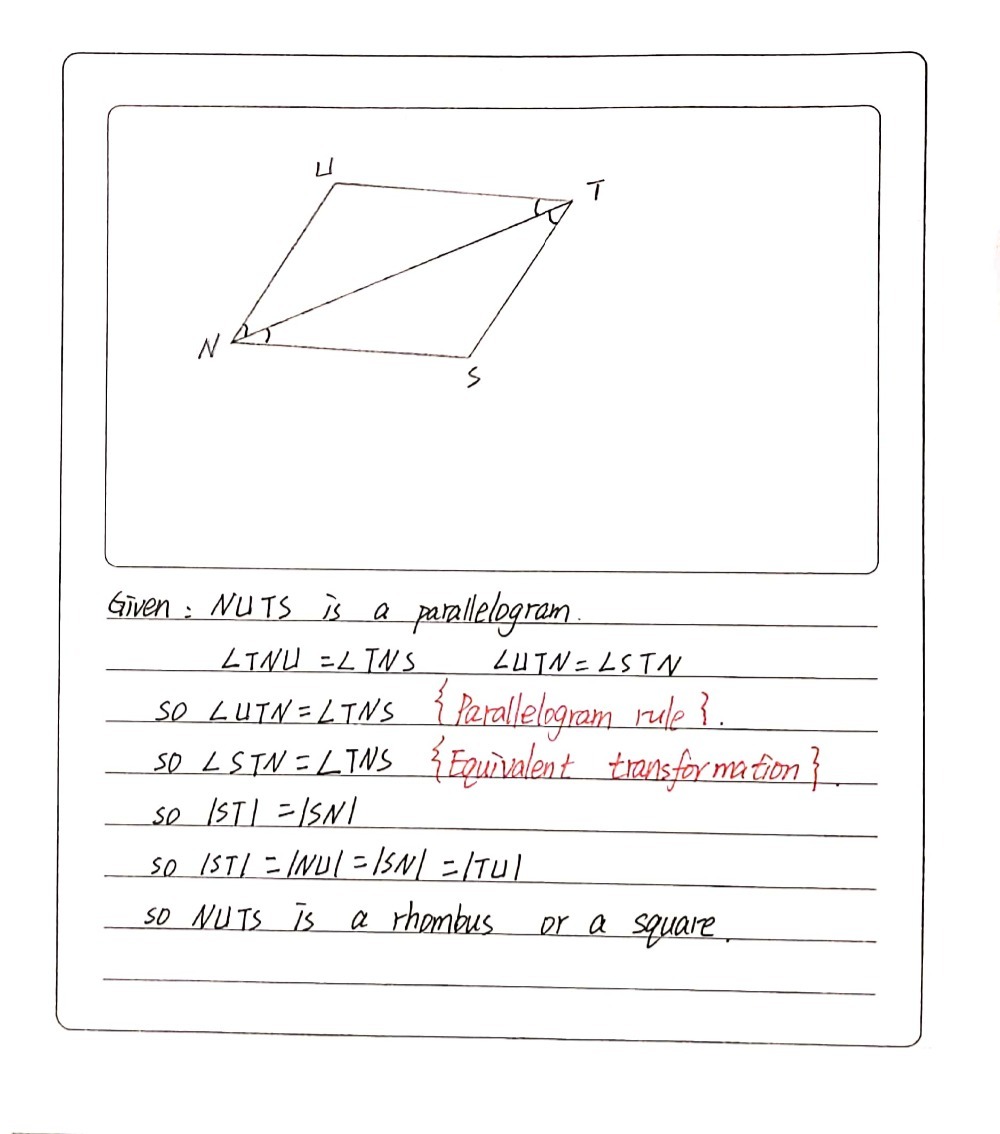 U
T
N
S
Given : NUTS is a parallelogram.
∠TNU = ∠TNS ∠UTN = ∠STN
so ∠UTN = ∠TNS {Parallelogram rule}.
so ∠STN = ∠TNS {Equivalent transformation}.
so |ST| = |SN|
so |ST| = |NU| = |SN| = |TU|
so NUTS is a rhombus or a square.